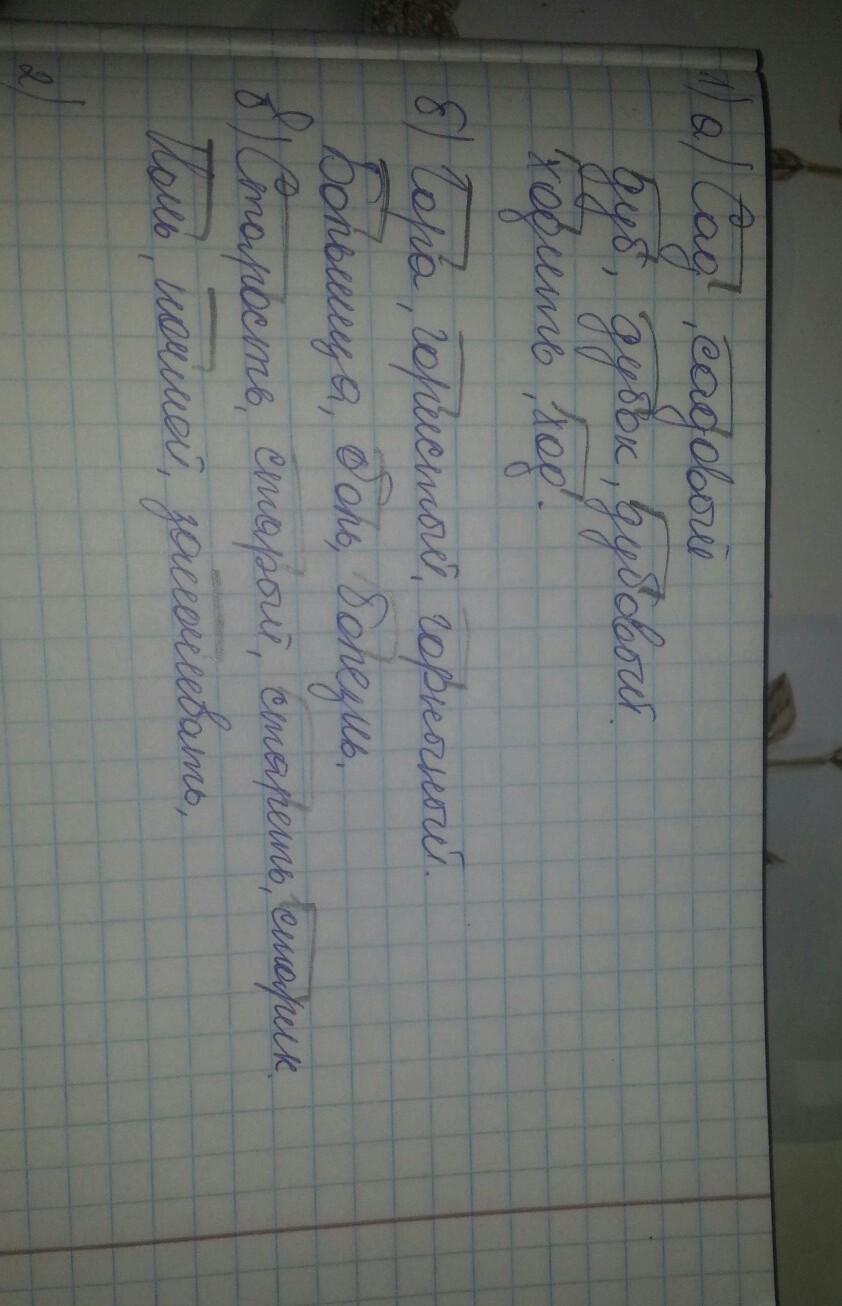 1) а) Сад, садовый
Дуб, дубок, дубовый.
Ходить, ход.
б) Гора, гористый, горный.
Больница, боль, болезнь.
в) Старость, старый, стареть, старик.
Ночь, ночной, заночевать,
2)